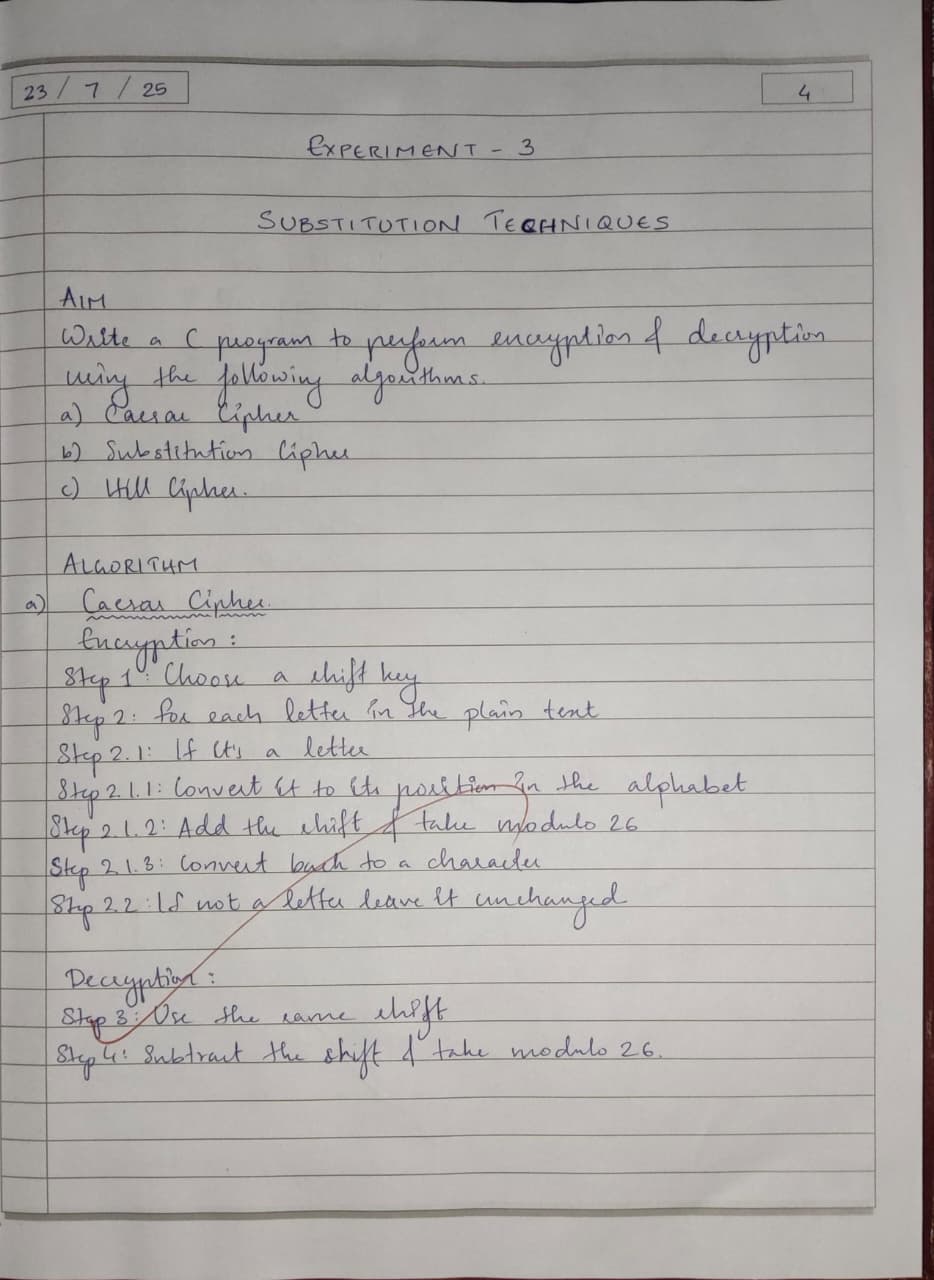 23 / 7 / 25
4
EXPERIMENT - 3
SUBSTITUTION TECHNIQUES
AIM
Write a C program to perform encryption & decryption
using the following algorithms.
a) Caesar Cipher
b) Substitution Cipher
c) Hill Cipher.
ALGORITHM
a) Caesar Cipher.
Encryption :
Step 1 : Choose a shift key
Step 2 : For each letter in the plain text
Step 2.1 : If it's a letter
Step 2.1.1 : Convert it to its position in the alphabet
Step 2.1.2 : Add the shift & take modulo 26
Step 2.1.3 : Convert back to a character
Step 2.2 : If not a letter leave it unchanged
Decryption :
Step 3 : Use the same shift
Step 4 : Subtract the shift & take modulo 26.